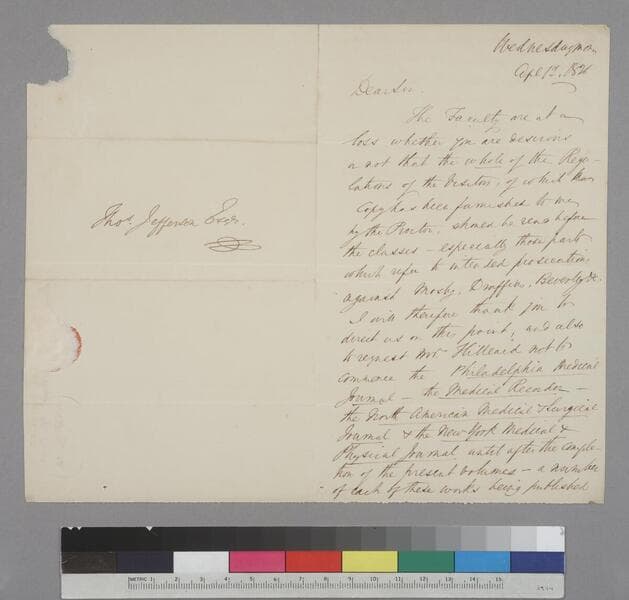 Thos. Jefferson Esqr.
Wednesday morn
Apl 12, 1826
Dear Sir.
The Faculty are at a
loss whether you are desirous
or not that the whole of the Regu-
lations of the Visitors, of which the
copy has been furnished to me
by the Proctor, should be read before
the classes – especially those parts
which refer to intended prosecutions
against Mosby, Draffin, Beverly &c.
I will therefore thank you to
direct us on this point, and also
to request Mr. Hilliard not to
commence the Philadelphia Medical
Journal – the Medical Recorder –
the North American Medical & Surgical
Journal & the New York Medical &
Physical Journal until after the comple-
tion of the present volumes – a number
of each of these works being published
METRIC 1 2 3 4 5 6 7 8 9 10 11 12 13 14 15